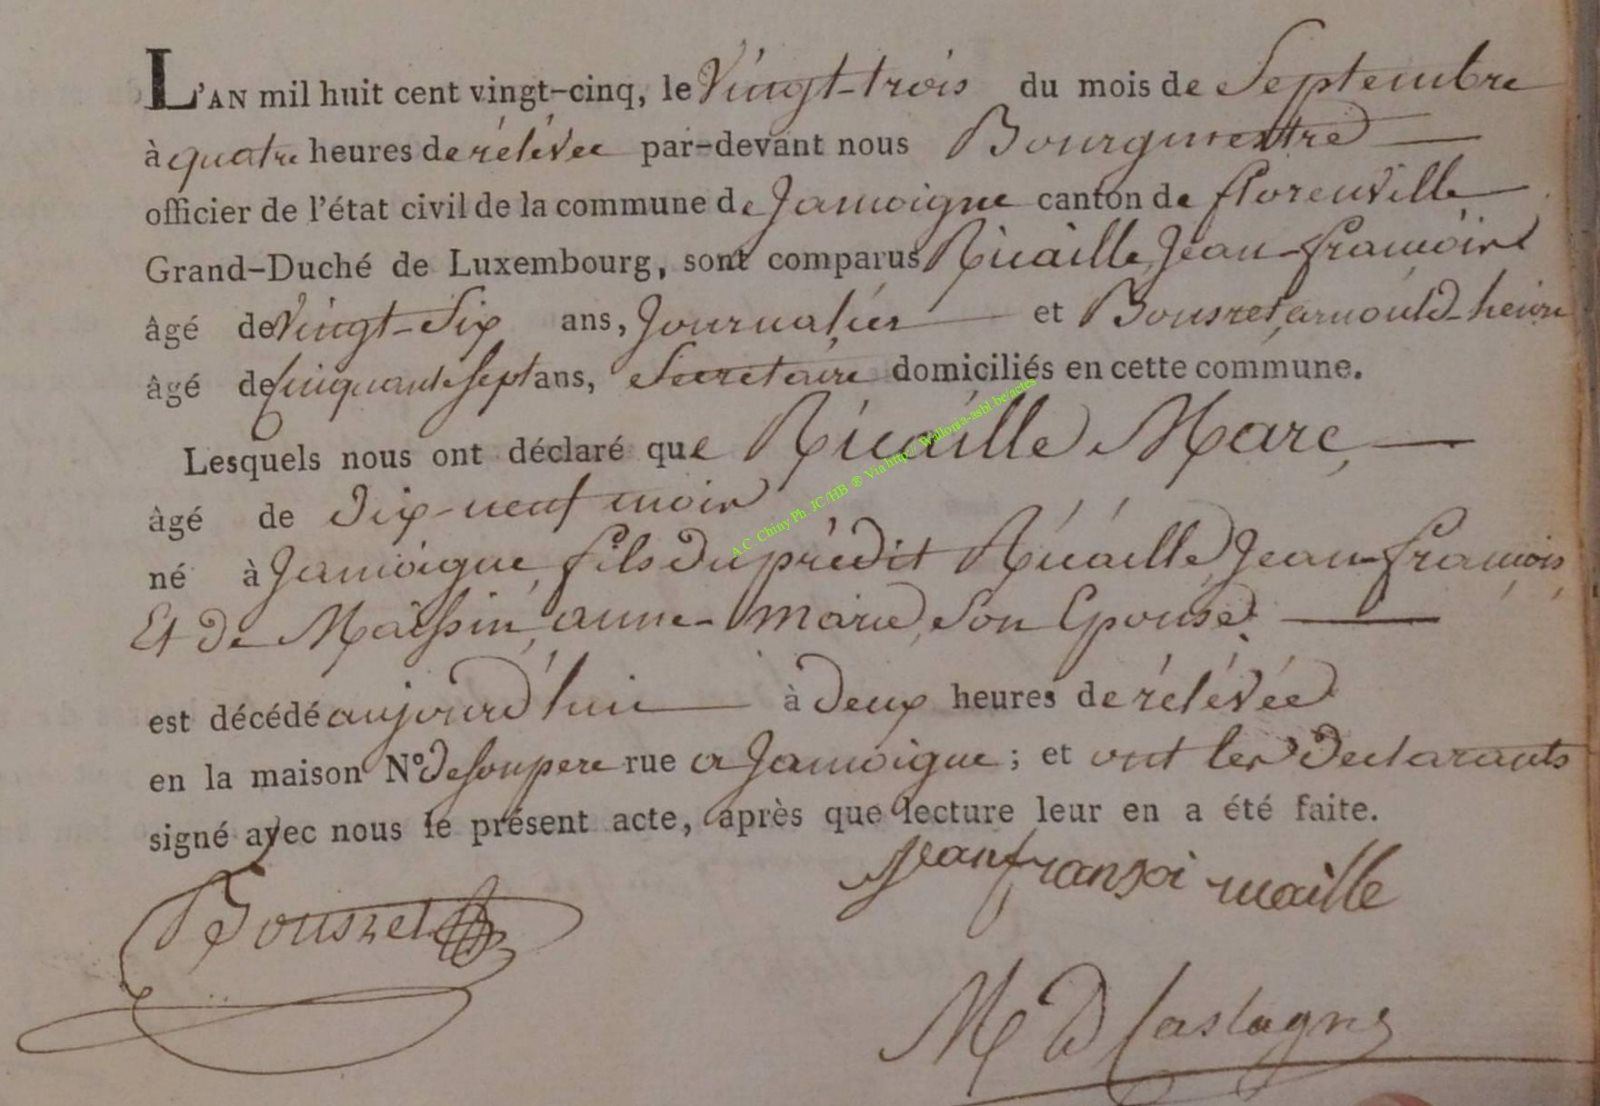 L'AN mil huit cent vingt-cinq, le Vingt-trois du mois de Septembre
à quatre heures de rélévée par-devant nous Bourgmestre
officier de l'état civil de la commune de Jamoigne canton de florenville
Grand-Duché de Luxembourg, sont comparus Ricaille, Jean-francois
âgé de Vingt-Six ans, Journalier et Bousret, arnould-
âgé de Cinquante Sept ans, Secretaire domiciliés en cette commune.
Lesquels nous ont déclaré que Ricaille Marc,
âgé de dix-neuf mois
né à Jamoigne, fils du prédit Ricaille, Jean-francois,
Et de Maissin, anne-marie, Son Epouse.
est décédé aujourd'hui à deux heures de rélévée
en la maison N° de son pere rue a Jamoigne ; et ont les déclarants
signé avec nous le présent acte, après que lecture leur en a été faite.
Jean fransoi ricaille
Bousret
A C Chiny Ph JC/HB ® Via http:// Wallonia-asbl.be/actes